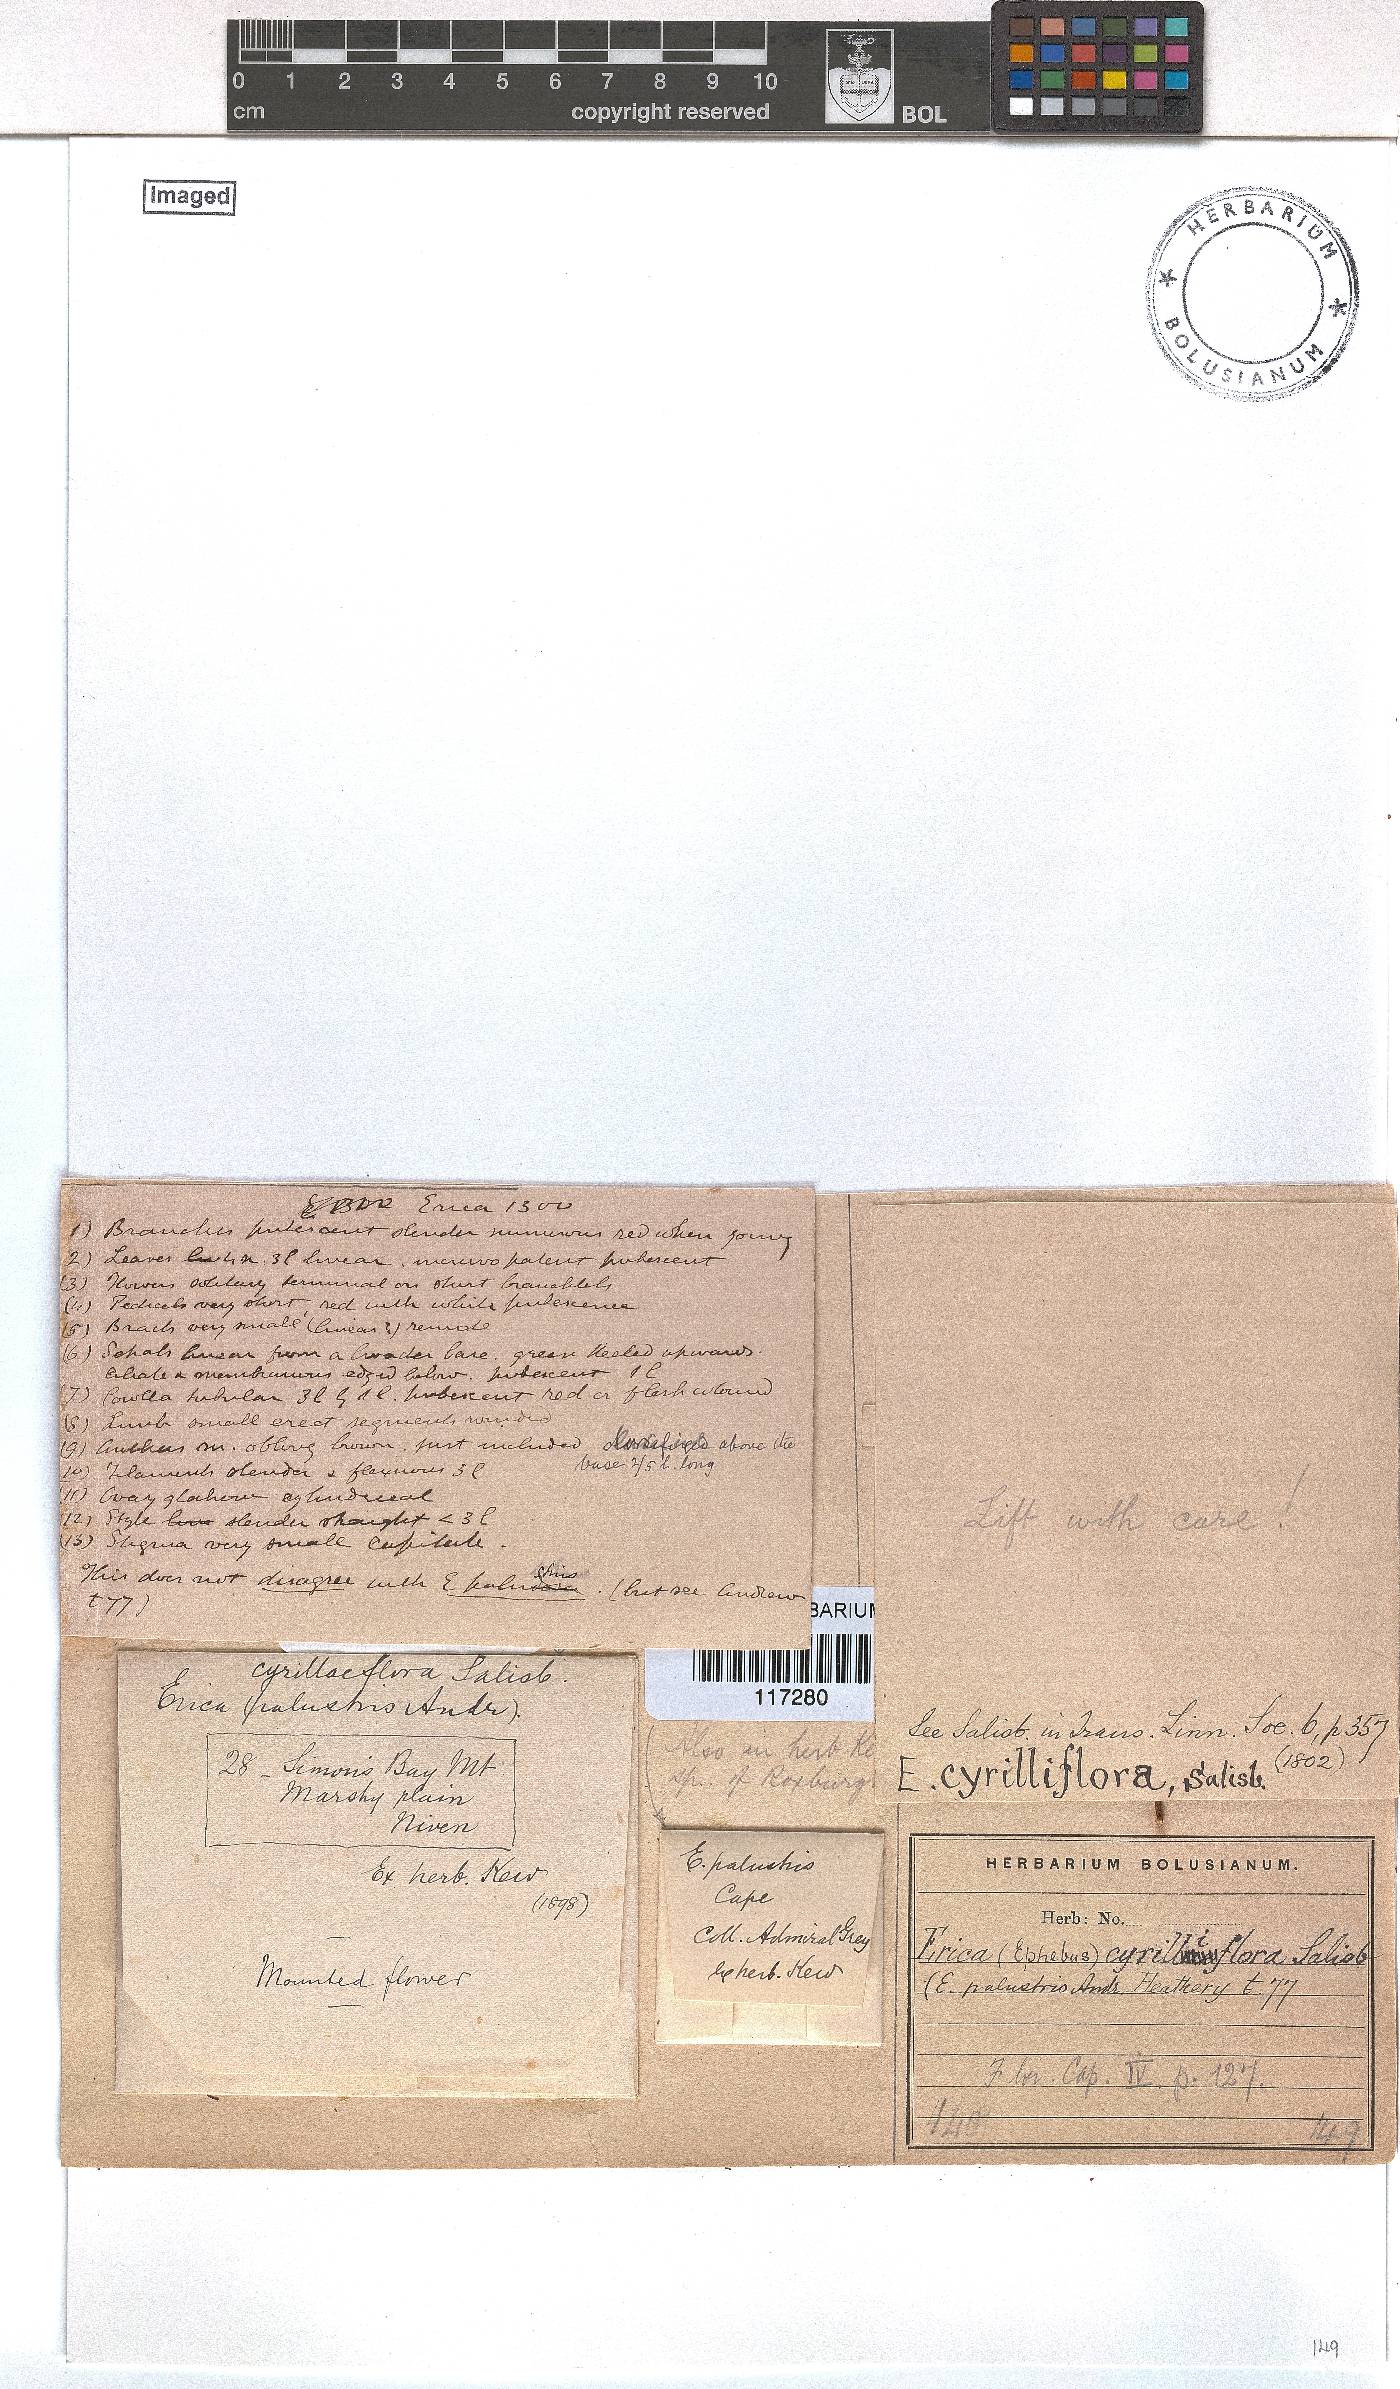 0 1 2 3 4 5 6 7 8 9 10
cm copyright reserved BOL
Imaged
HERBARIUM
BOLUSIANUM
Erica 1300
1) Branches pubescent slender numerous red when young
2) Leaves 3l linear, incurvo patent pubescent
(3) Flowers solitary terminal on short branchlets
(4) Pedicels very short, red with white pubescence
(5) Bracts very small (linear?) remote
(6) Sepals linear from a broader base, green keeled upwards.
ciliate & membranous edged below. pubescent 1l
(7) Corolla tubular 3l by 1l. pubescent red or flesh coloured
(8) Limb small erect segments rounded
(9) Anthers m. oblong brown, just included dorsifixed above the
base 2/5 l. long
10) Filaments slender & flexuous 3l
(11) Ovary glabrous cylindrical
(12) Style slender straight < 3l
(13) Stigma very small capitate.
This does not disagree with E palustris. (but see Andrews
t 77)
BARIUM
117280
cyrillaeflora Salisb.
Erica (palustris Andr).
28 - Simon's Bay Mt
Marshy plain
Niven
Ex herb. Kew
(1898)
Mounted flower
(Also in herb Ke
sp. of Roxburgh
E. palustris
Cape
Coll. Admiral Grey
Ex herb. Kew
Lift with care!
See Salisb. in Trans. Linn. Soc. 6, p 357
(1802)
E. cyrilliflora, Salisb.
HERBARIUM BOLUSIANUM.
Herb: No.
Erica (Ephebus) cyrilliflora Salisb
(E. palustris Andr. Heathery t. 77
Flor. Cap. IV. p. 127.
148 149
149